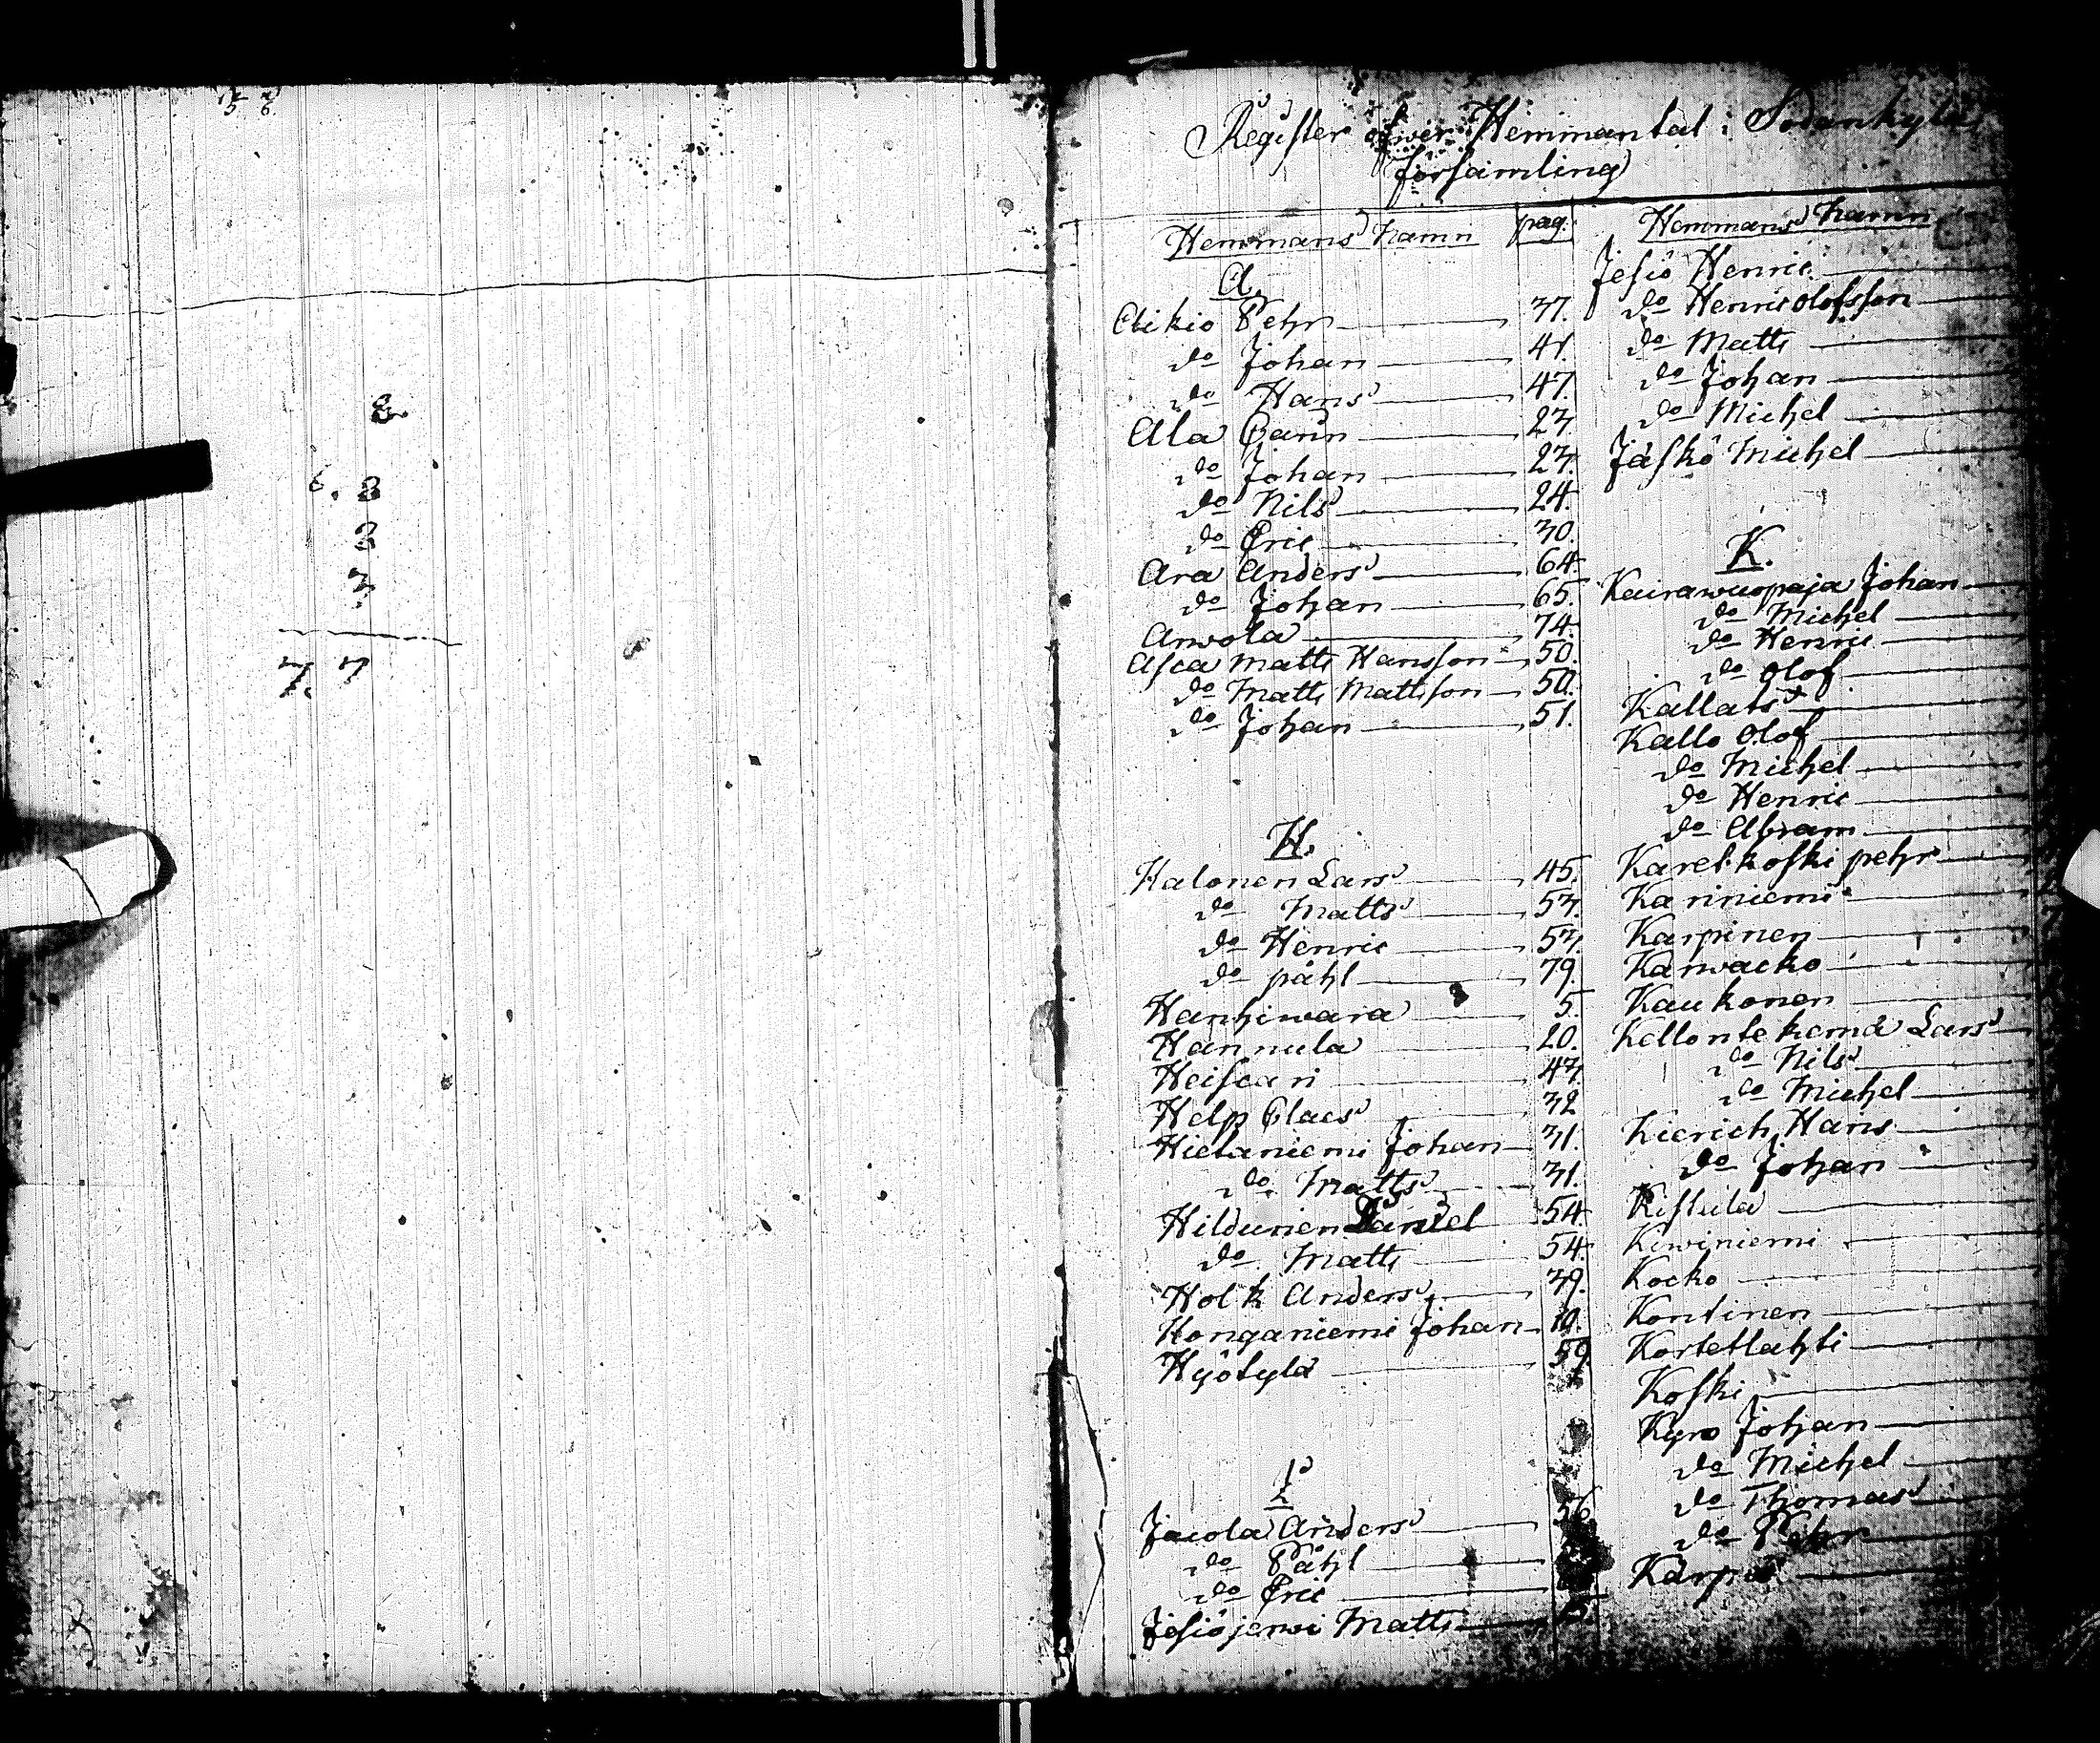 8.
6. 3
2
3
7. 7
Register öfwer Hemmantal i Sodankylä
församling
Hemmans namn pag.
A.
Aikio Pehr 37.
do Johan 41
do Hans 47.
Ala Carin 23
do Johan 23.
do Nils 24.
do Eric 30.
Ara Anders 64.
do Johan 65.
Arwola 74.
Asca Matts Hansson 50.
do Matts Mattsson 50.
do Johan 51.
H.
Halonen Lars 45.
do Matts 53.
do Henric 53.
do påhl 79.
Hanhiwara 5.
Hannula 20.
Heiscari 43.
Help Claes 32
Hietaniemi Johan 31.
do Matts 31.
Hildunen Daniel 54
do Matts 54.
Holk Anders 39.
Honganiemi Johan 19.
Hyötylä 59.
I
Jacola Anders 56
do Påhl
do Eric
Jesiöjerwi Matts
Hemmans namn
Jesiö Henric
do Henric Olofsson
do Matts
do Johan
do Michel
Jäskö Michel
K.
Kairawuopaja Johan
do Michel
do Henric
do Olof
Kallats
Kallo Olof
do Michel
do Henric
do Abram
Karelkoski pehr
Kariniemi
Karpinen
Karwacko
Kaukonen
Kellontekemä Lars
do Nils
do Michel
Kierich Hans
do Johan
Kistula
Kiwiniemi
Kocko
Kontinen
Kortetlahti
Koski
Kyrö Johan
do Michel
do Thomas
do Pehr